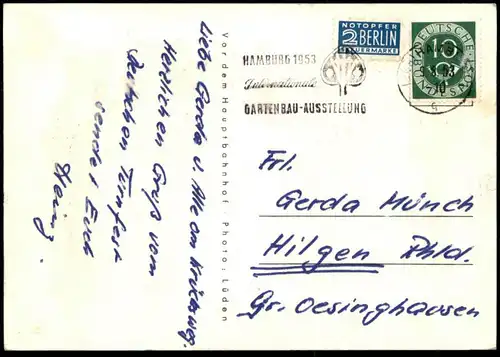 NOTOPFER
2 BERLIN
STEUERMARKE
HAMBURG 1953
Internationale
GARTENBAU-AUSSTELLUNG
DEUTSCHE
BUNDESPOST
10
Liebe Gerda u. Alle am
Herzlichen Gruß vom
Deutschen Turnfest
sendet Euch
Heinz.
Vor dem Hauptbahnhof Photo: Lüden
Frl.
Gerda Münch
Hilgen Rhld.
Gr. Oesinghausen